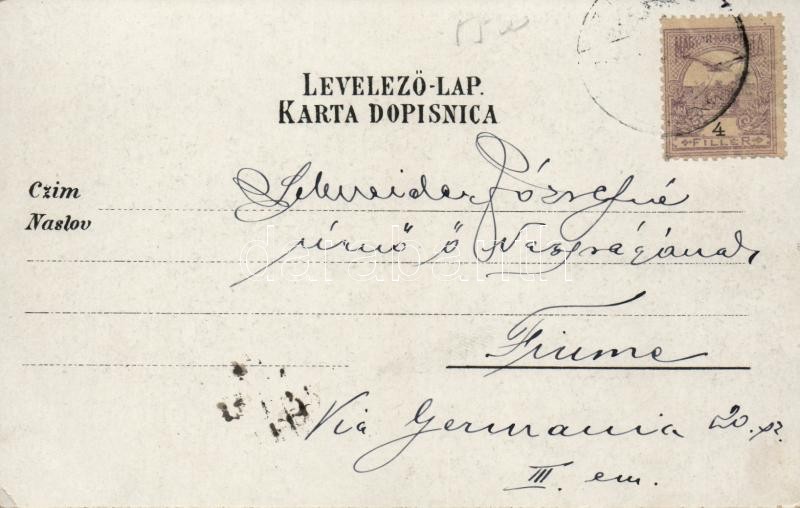 LEVELEZŐ-LAP.
KARTA DOPISNICA
MAGYAR KIR. POSTA
4
FILLÉR
Czim
Naslov
Schneider Józsefné
úrnő ő Nagyságának
Fiume
Via Germania 20. sz.
III. em.
darabanth